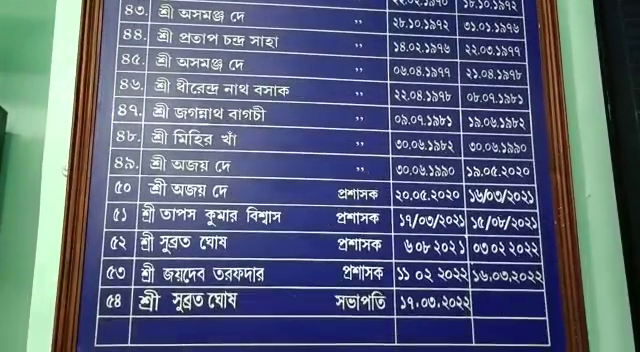 ২২.০২.১৯৭০ ১৮.১০.১৯৭২
৪৩. শ্রী অসমঞ্জ দে ,, ২৮.১০.১৯৭২ ৩১.০১.১৯৭৬
৪৪. শ্রী প্রতাপ চন্দ্র সাহা ,, ১৪.০২.১৯৭৬ ২২.০৩.১৯৭৭
৪৫. শ্রী অসমঞ্জ দে ,, ০৬.০৪.১৯৭৭ ২১.০৪.১৯৭৮
৪৬. শ্রী ধীরেন্দ্র নাথ বসাক ,, ২২.০৪.১৯৭৮ ০৮.০৭.১৯৮১
৪৭. শ্রী জগন্নাথ বাগচী ,, ০৯.০৭.১৯৮১ ১৯.০৬.১৯৮২
৪৮. শ্রী মিহির খাঁ ,, ৩০.০৬.১৯৮২ ৩০.০৬.১৯৯০
৪৯. শ্রী অজয় দে ,, ৩০.০৬.১৯৯০ ১৯.০৫.২০২০
৫০ শ্রী অজয় দে প্রশাসক ২০.০৫.২০২০ ১৬/০৩/২০২১
৫১ শ্রী তাপস কুমার বিশ্বাস প্রশাসক ১৭/০৩/২০২১ ১৫/০৮/২০২১
৫২ শ্রী সুব্রত ঘোষ প্রশাসক ৬ ০৮ ২০২১ ০৩ ০২ ২০২২
৫৩ শ্রী জয়দেব তরফদার প্রশাসক ১১ ০২ ২০২২ ১৬.০৩.২০২২
৫৪ শ্রী সুব্রত ঘোষ সভাপতি ১৭.০৩.২০২২